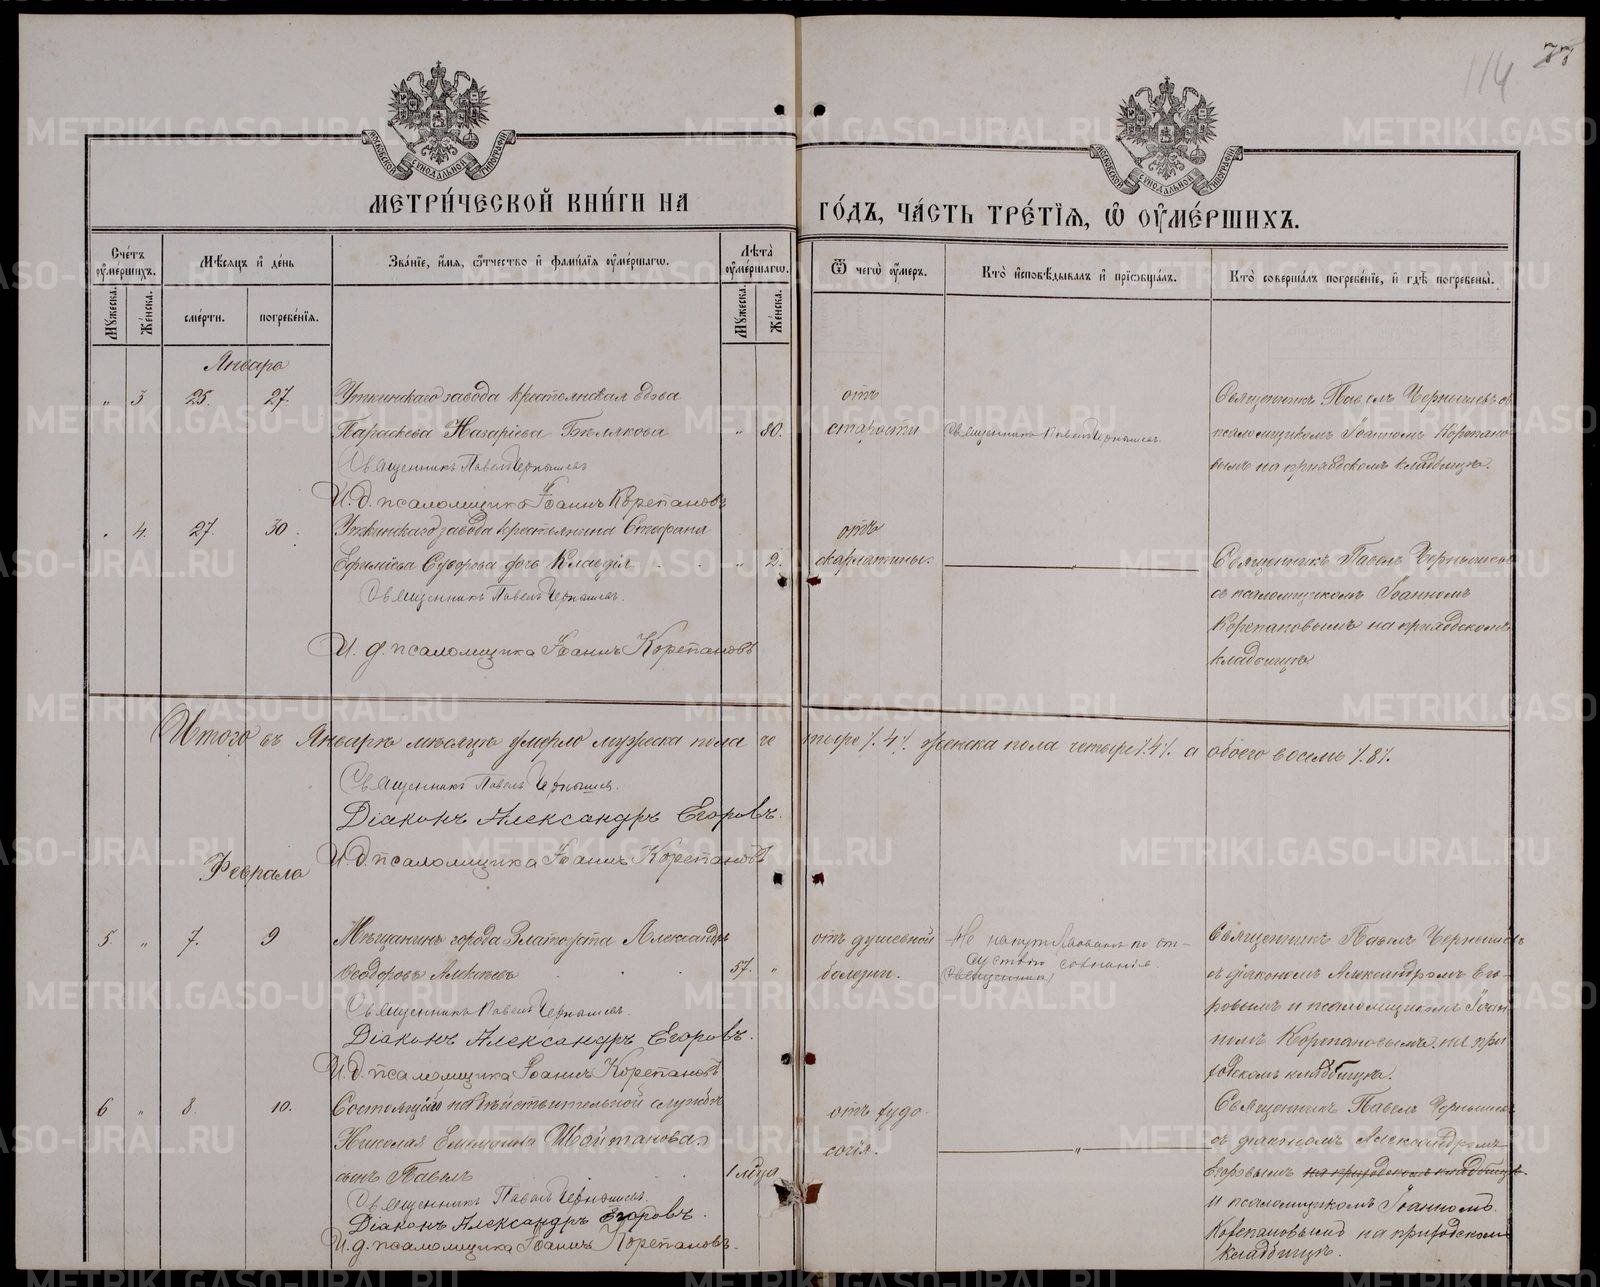 114
77
МОСКОВСКОЙ СѴНОДАЛЬНОЙ ТИПОГРАФІИ
МОСКОВСКОЙ СѴНОДАЛЬНОЙ ТИПОГРАФІИ
МЕТРИ́ЧЕСКОЙ КНИ́ГИ НА
ГО́ДЪ, ЧА́СТЬ ТРЕ́ТІѦ, Ѡ ОУМЕ́РШИХЪ.
Сче́тъ оуме́ршихъ.
Мꙋжеска.
Же́нска.
Мѣ́сѧцъ и҆ де́нь
сме́рти.
погребе́нїѧ.
Зва́нїе, и҆́мѧ, ѻ҆́тчество и҆ фами́лїѧ оуме́ршагѡ.
Лѣ́та оуме́ршагѡ.
Мꙋжеска.
Же́нска.
Ѿ чегѡ̀ оу́меръ.
Кто̀ и҆сповѣ́дывалъ и҆ прїѡбща́лъ.
Кто̀ соверша́лъ погребе́нїе, и҆ гдѣ̀ погребены̀.
Января
" 3 25. 27. Уткинскаго завода крестьянская вдова
Параскева Назаріева Бѣлякова " 80.
Священникъ Павелъ Чернышевъ
И. д. псаломщика Іоаннъ Корепановъ
отъ
старости
Священникъ Павелъ Чернышевъ
Священникъ Павелъ Чернышевъ съ
псаломщикомъ Іоанномъ Корепано-
вымъ на приходскомъ кладбищѣ.
" 4. 27. 30. Уткинскаго завода крестьянина Стефана
Ефимiева Суворова дочь Клавдія " 2.
Священникъ Павелъ Чернышевъ.
И. д. псаломщика Іоаннъ Корепановъ
отъ
скарлатины.
"
Священникъ Павелъ Чернышевъ
съ псаломщикомъ Іоанномъ
Корепановымъ на приходскомъ
кладбищѣ
Итого въ Январѣ мѣсяцѣ умерло мужеска пола четыре /.4/. женска пола четыре /.4/. а обоего восемь /.8/.
Священникъ Павелъ Чернышевъ.
Діаконъ Александръ Егоровъ.
И. д. псаломщика Іоаннъ Корепановъ
Февраля
5 " 7. 9 Мѣщанинъ города Златоуста Александръ
Ѳеодоровъ 57. "
Священникъ Павелъ Чернышевъ.
Діаконъ Александръ Егоровъ.
И. д. псаломщика Іоаннъ Корепановъ
отъ душевной
болезни.
Не напутствованъ по от-
сутствію сознанія.
Священникъ
Священникъ Павелъ Чернышевъ
съ діакономъ Александромъ Его-
ровымъ и псаломщикомъ Іоан-
номъ Корепановымъ. на при
ходскомъ кладбищѣ.
6 " 8. 10. Состоящаго на дѣйствительной службѣ
Николая Шайтанова
сынъ Павелъ 1 мѣсяца
Священникъ Павелъ Чернышевъ.
Діаконъ Александръ Егоровъ.
И. д. псаломщика Іоаннъ Корепановъ.
отъ худо-
сочія.
"
Священникъ Павелъ Чернышевъ
съ діакономъ Александромъ
Егоровымъ на приходскомъ кладбищѣ
и псаломщикомъ Іоанномъ
Корепановымъ на приходскомъ
кладбищѣ.